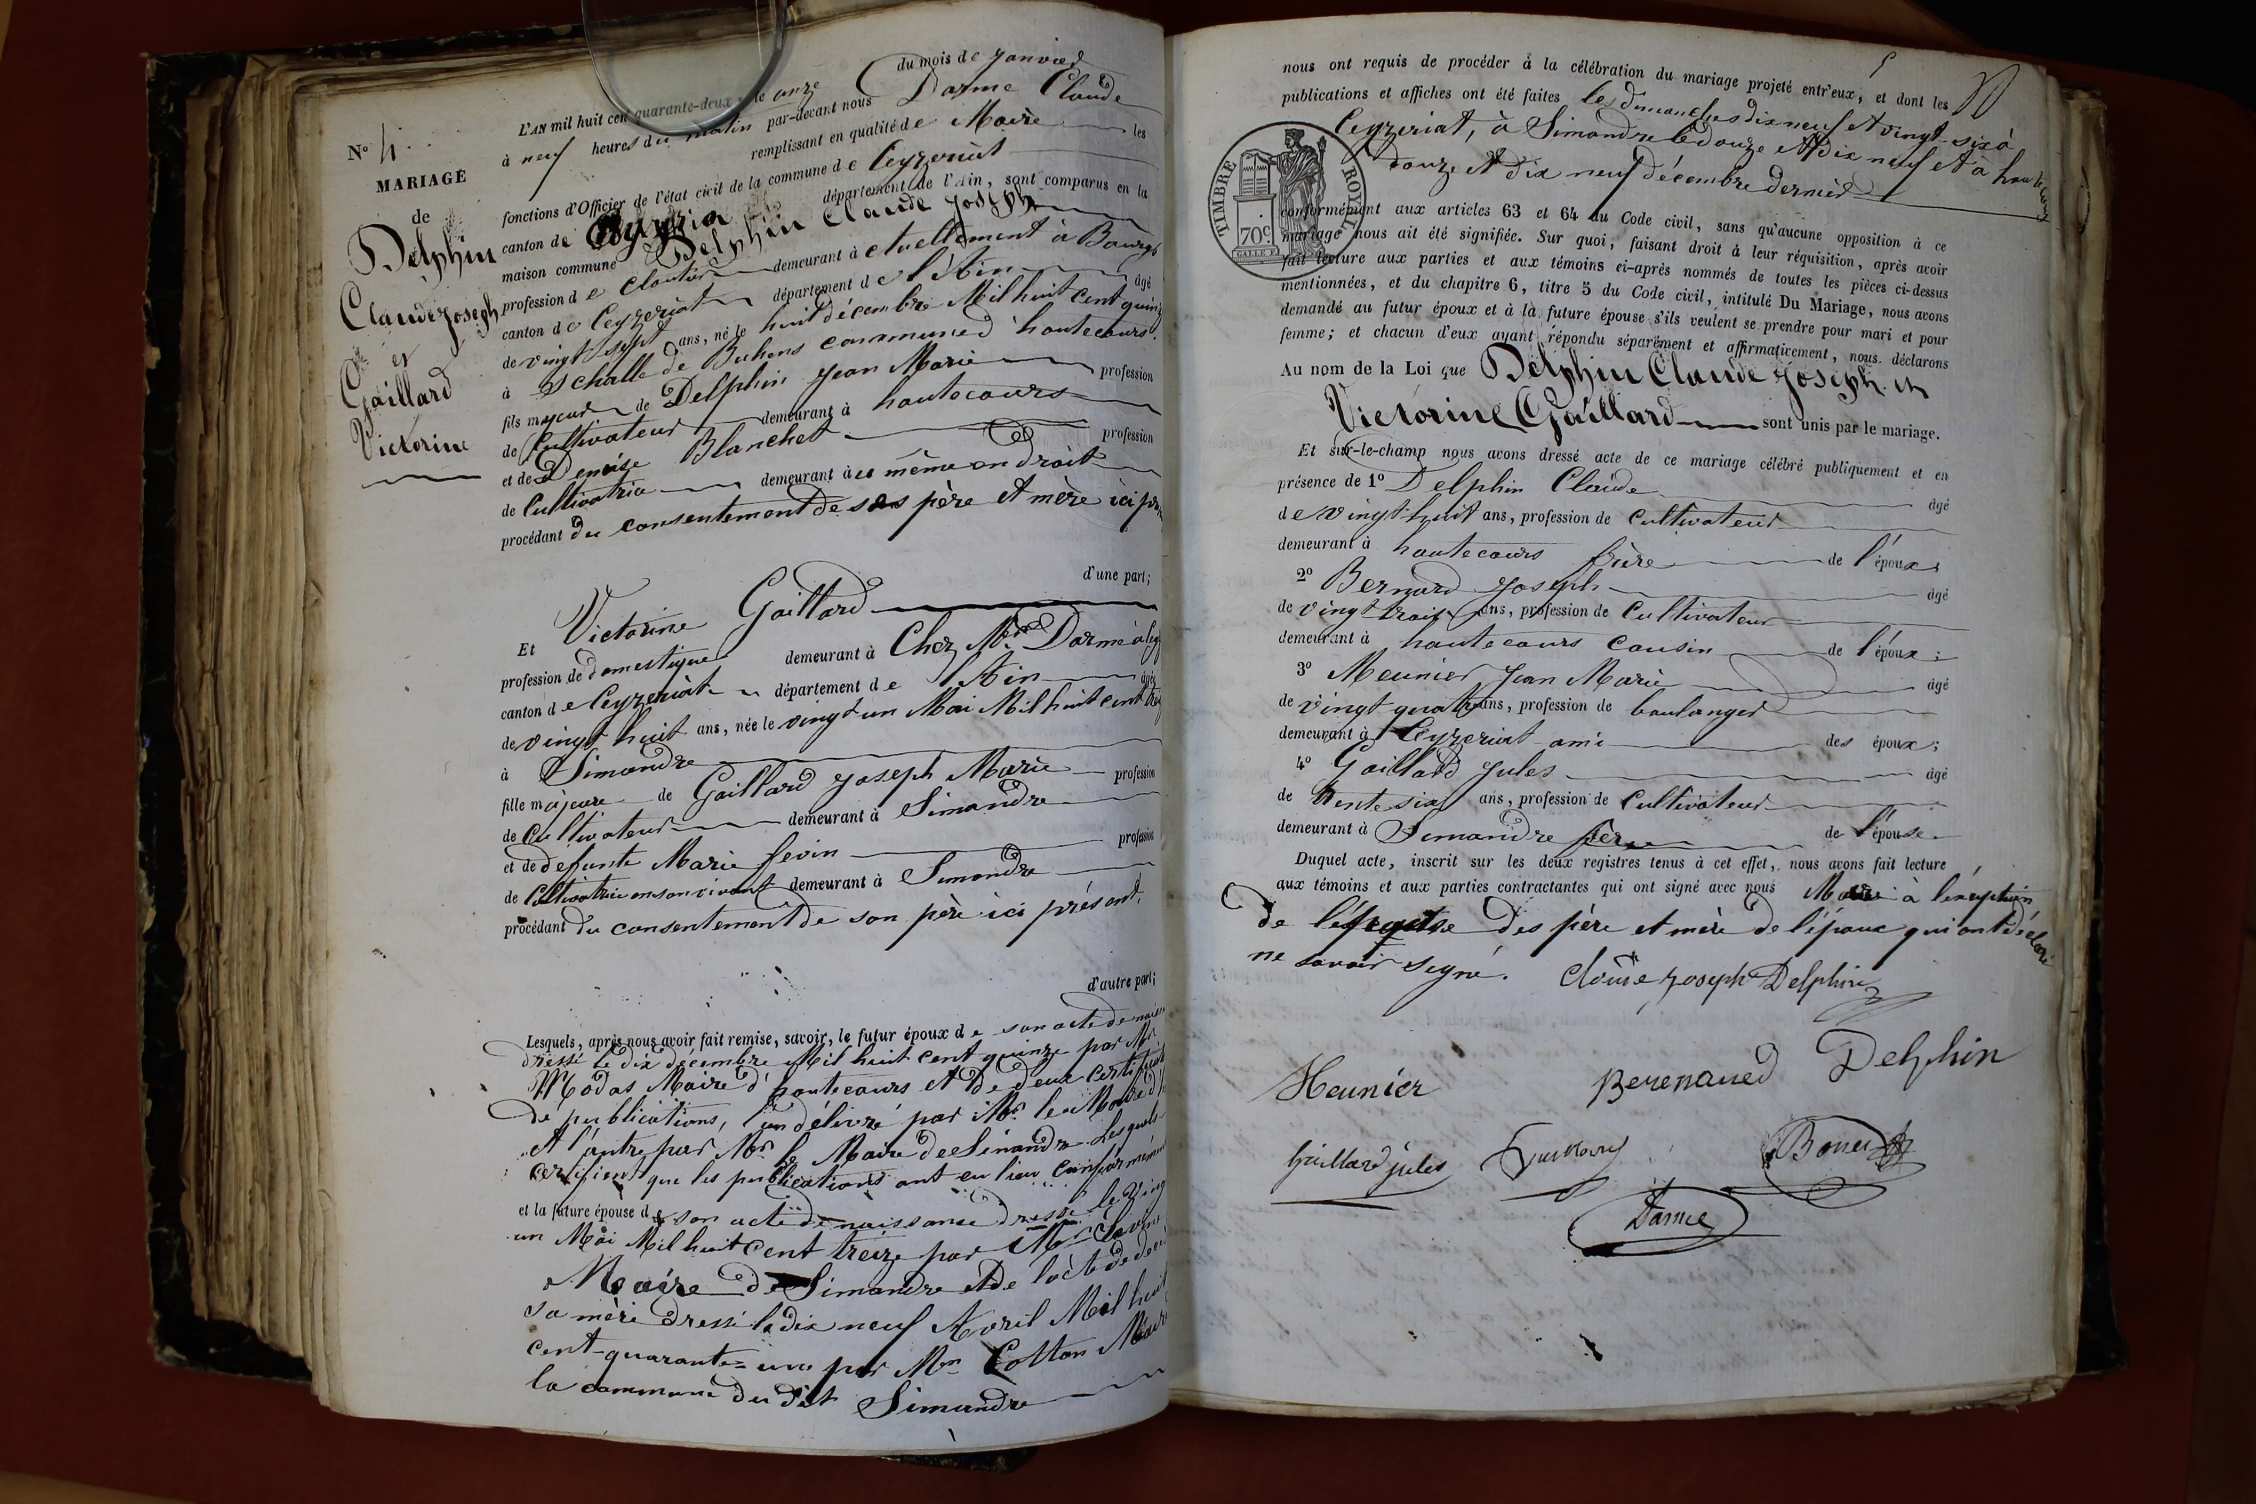 N° 4.
MARIAGE
de
Delphin
Claude Joseph
et
Gaillard
Victorine
L'AN mil huit cent quarante-deux le onze du mois de Janvier
à neuf heures du matin par-devant nous Darme Claude
remplissant en qualité de Maire les
fonctions d'Officier de l'état civil de la commune de Ceyzeriat
canton de Ceyzeria département de l'Ain, sont comparus en la
maison commune Delphin Claude Joseph
profession de cloutier demeurant à actuellement à Bourg
canton de Ceyzeriat département de l'Ain âgé
de vingt-sept ans, né le huit décembre Mil huit cent quinze
à de Buhens commune d'hautecours
fils majeur de Delphin Jean Marie profession
de Cultivateur demeurant à hautecours
et de Denise Blanchet profession
de Cultivatrice demeurant à au même endroit
procédant du consentement de ses père et mère ici
d'une part;
Et Victorine Gaillard
profession de domestique demeurant à Chez Mr Darme à
canton de Ceyzeriat département de l'Ain âgée
de vingt huit ans, née le vingt un Mai Mil huit cent
à Simandre
fille majeure de Gaillard Joseph Marie profession
de Cultivateur demeurant à Simandre
et de defunte Marie fevin profession
de Cultivatrice en son vivant demeurant à Simandre
procédant du consentement de son père ici présent,
d'autre part;
Lesquels, après nous avoir fait remise, savoir, le futur époux de son acte de
dressé le dix décembre Mil huit cent quinze par Mr
Modas Maire d'hautecours et de deux certificats
de publications, l'un délivré par Mr le Maire
et l'autre par Mr le Maire de Simandre Lesquels
certifient que les publications ont eu lieu conformément
et la future épouse de son acte de naissance dressé le
un Mai Mil huit cent treize par Mr
Maire de Simandre et de l'acte de
sa mère dressé le dix neuf Avril Mil huit
cent-quarante-une par Mr Cotton Maire
la commune du dit Simandre
nous ont requis de procéder à la célébration du mariage projeté entr'eux, et dont les
publications et affiches ont été faites les dimanches dix neuf et vingt-six à
Ceyzeriat, à Simandre le douze et dix neuf et à
douze et dix neuf décembre dernier
TIMBRE ROYAL
70c
conformément aux articles 63 et 64 du Code civil, sans qu'aucune opposition à ce
mariage nous ait été signifiée. Sur quoi, faisant droit à leur réquisition, après avoir
fait lecture aux parties et aux témoins ci-après nommés de toutes les pièces ci-dessus
mentionnées, et du chapitre 6, titre 5 du Code civil, intitulé Du Mariage, nous avons
demandé au futur époux et à la future épouse s'ils veulent se prendre pour mari et pour
femme; et chacun d'eux ayant répondu séparément et affirmativement, nous déclarons
Au nom de la Loi que Delphin Claude Joseph et
Victorine Gaillard sont unis par le mariage.
Et sur-le-champ nous avons dressé acte de ce mariage célébré publiquement et en
présence de 1° Delphin Claude âgé
de vingt huit ans, profession de Cultivateur
demeurant à hautecours frère de l'époux;
2° Bernard Joseph âgé
de vingt trois ans, profession de Cultivateur
demeurant à hautecours cousin de l'époux;
3° Meunier Jean Marie âgé
de vingt quatre ans, profession de boulanger
demeurant à Ceyzeriat ami des époux;
4° Gaillard Jules âgé
de trente six ans, profession de Cultivateur
demeurant à Simandre de l'épouse
Duquel acte, inscrit sur les deux registres tenus à cet effet, nous avons fait lecture
aux témoins et aux parties contractantes qui ont signé avec nous Maire à l'exeption
de des père et mère de l'époux qui ont déclaré
ne savoir signé. Claude Joseph Delphin
Meunier Berenaued Delphin
Gaillard jules
Darme